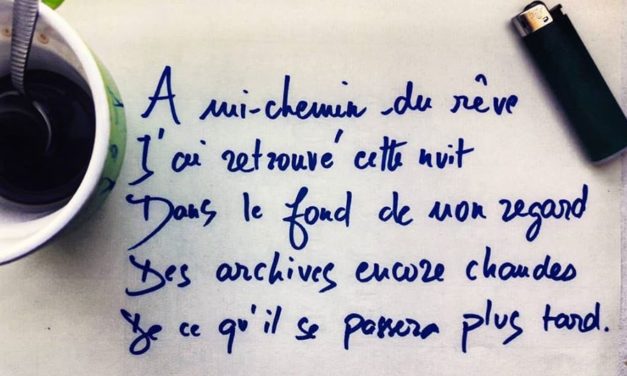 A mi-chemin du rêve
J'ai retrouvé cette nuit
Dans le fond de mon regard
Des archives encore chaudes
De ce qu'il se passera plus tard.